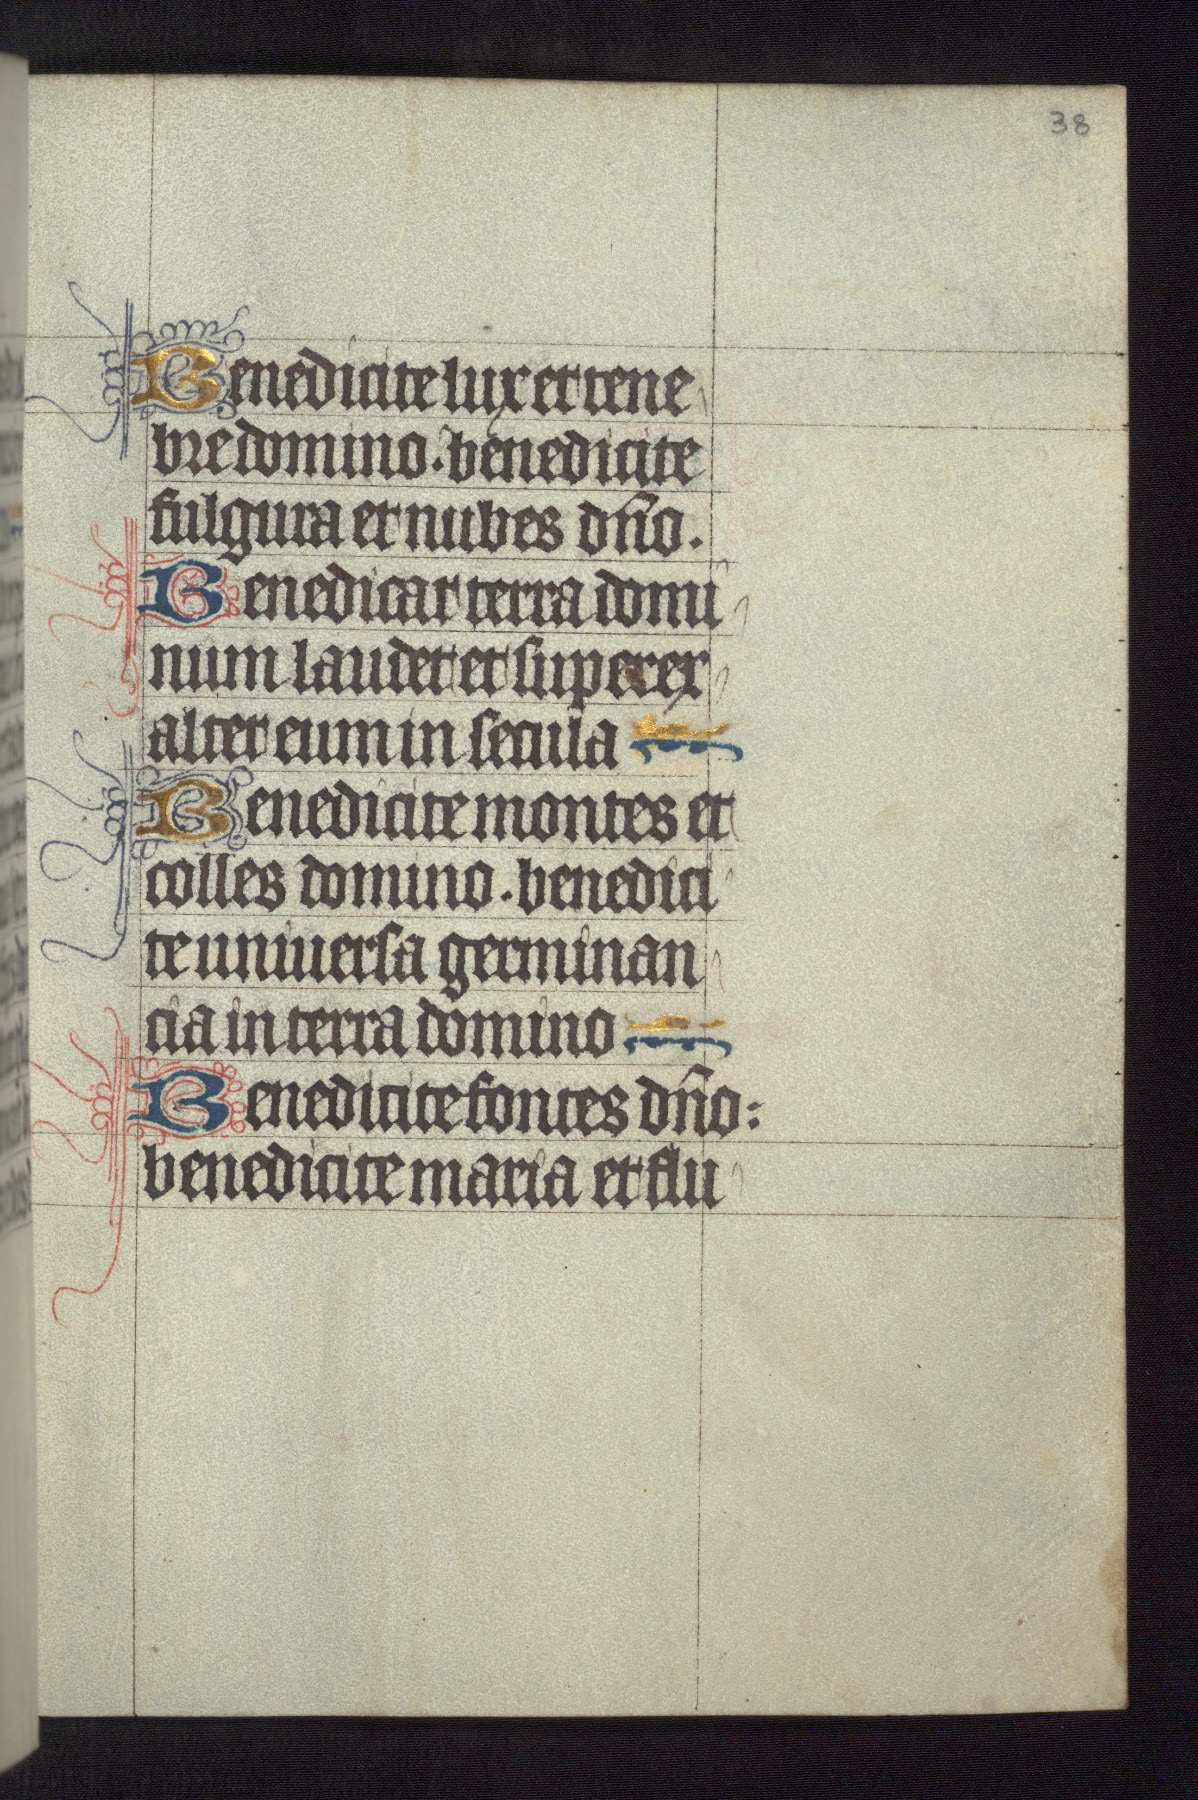 38
Benedicite lux et tene
bre domino. benedicite
fulgura et nubes dn̄o.
Benedicat terra domi
num laudet et superex
altet eum in secula
Benedicite montes et
colles domino. benedici
te uniuersa germinan
cia in terra domino
Benedicite fontes dn̄o:
benedicite maria et flu